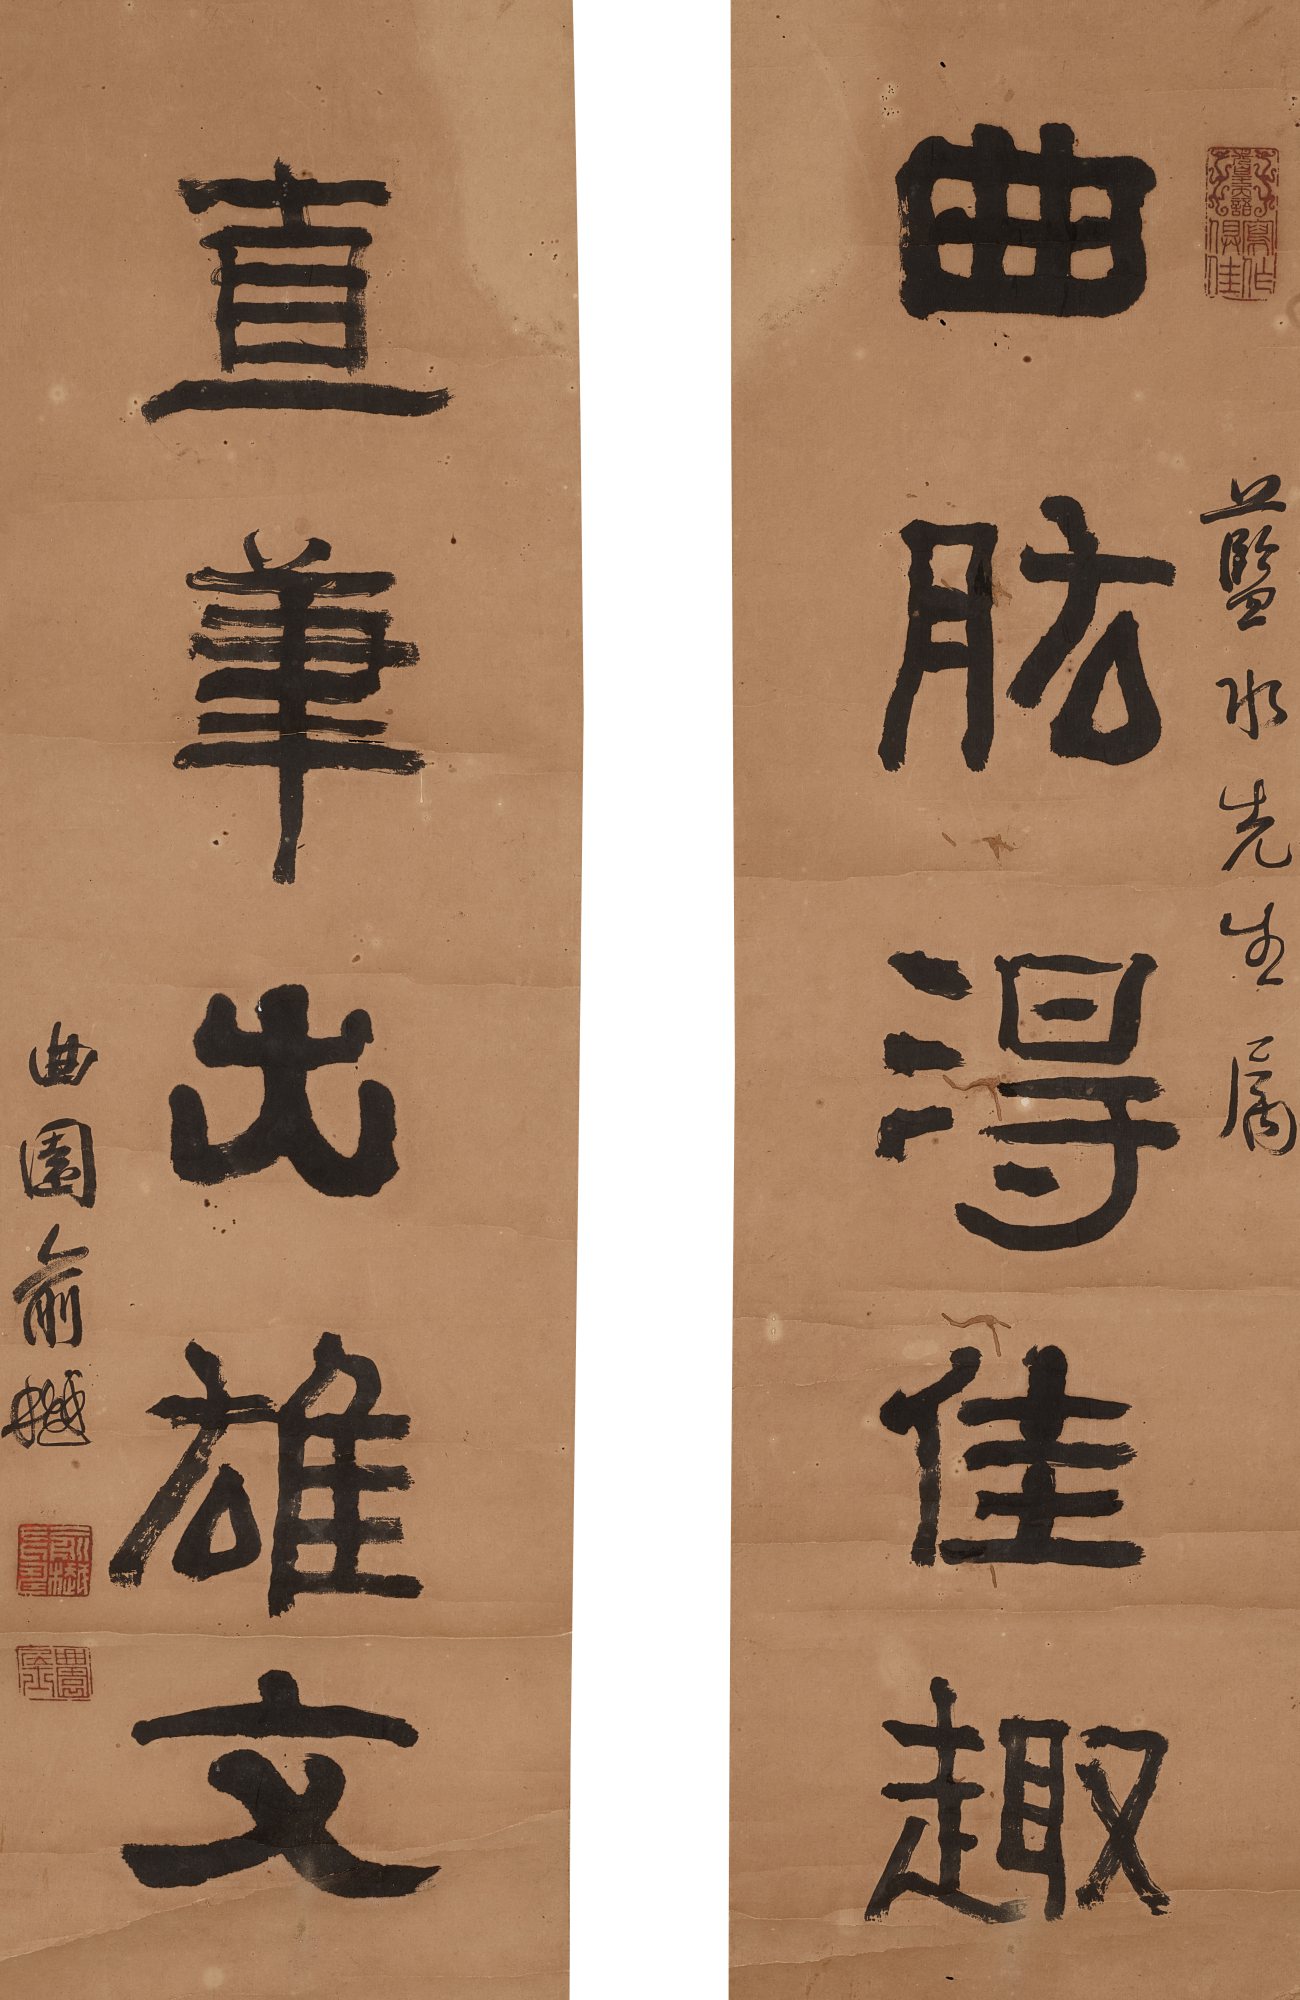 藍水先生属
曲肱得佳趣
直筆出雄文
曲園俞樾